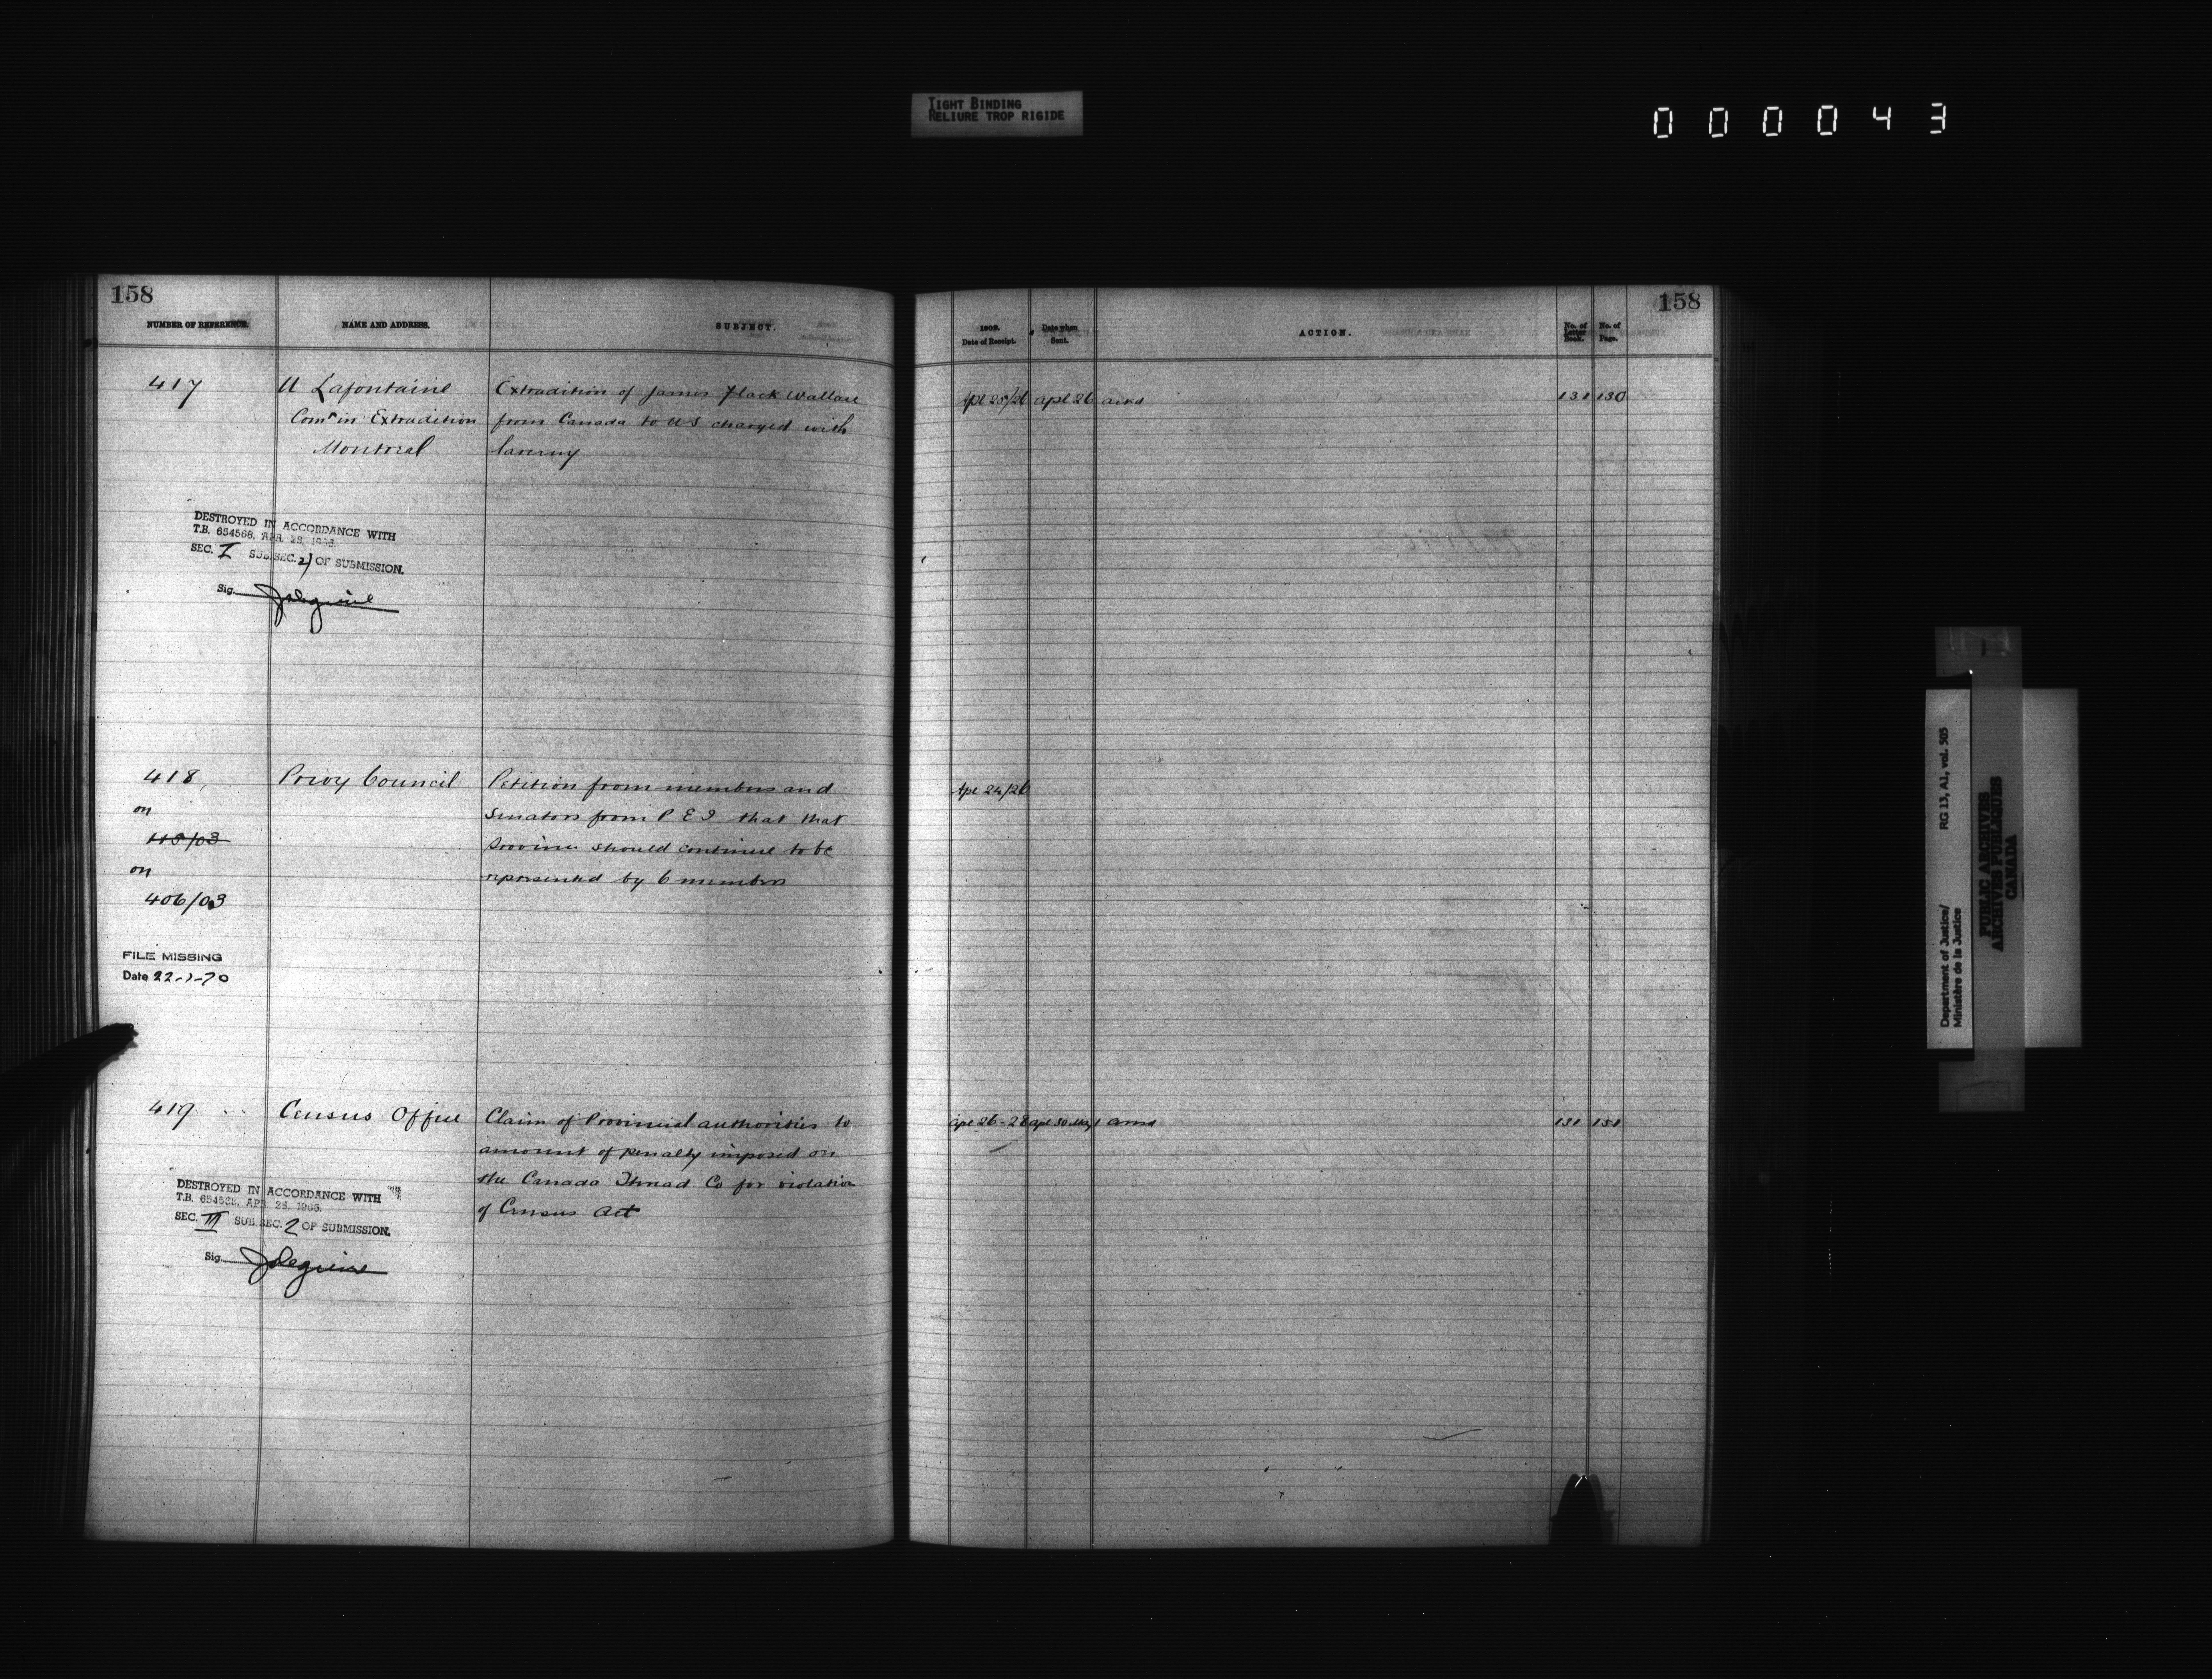 TIGHT BINDING
RELIURE TROP RIGIDE
000043
158
NUMBER OF REFERENCE.
NAME AND ADDRESS.
SUBJECT.
417
U Lafontaine
Comr in Extradition
Montreal
Extradition of James Flack Wallace
from Canada to US charged with
larceny
DESTROYED IN ACCORDANCE WITH
T.B. 654568, APR. 28, 1966.
SEC. I SUB.SEC. 2) OF SUBMISSION.
Sig.
418
on
115/03
on
406/03
Privy Council
Petition from members and
Senators from P E I that that
Province should continue to be
represented by 6 members
FILE MISSING
Date 22-1-70
419
Census Office
Claim of Provincial authorities to
amount of penalty imposed on
the Canada Thread Co for violation
of Census Act
DESTROYED IN ACCORDANCE WITH
T.B. 654568, APR. 28, 1966.
SEC. III SUB.SEC. 2 OF SUBMISSION.
Sig.
158
1902.
Date of Receipt.
Date when
Sent.
ACTION.
No. of
Letter
Book.
No. of
Page.
Apl 25/26 apl 26 ackd 131 130
Apl 24/26
apl 26-28 apl 30 May 1 ansd 131 151
Department of Justice/
Ministère de la Justice
RG 13, A1, vol. 505
PUBLIC ARCHIVES
ARCHIVES PUBLIQUES
CANADA